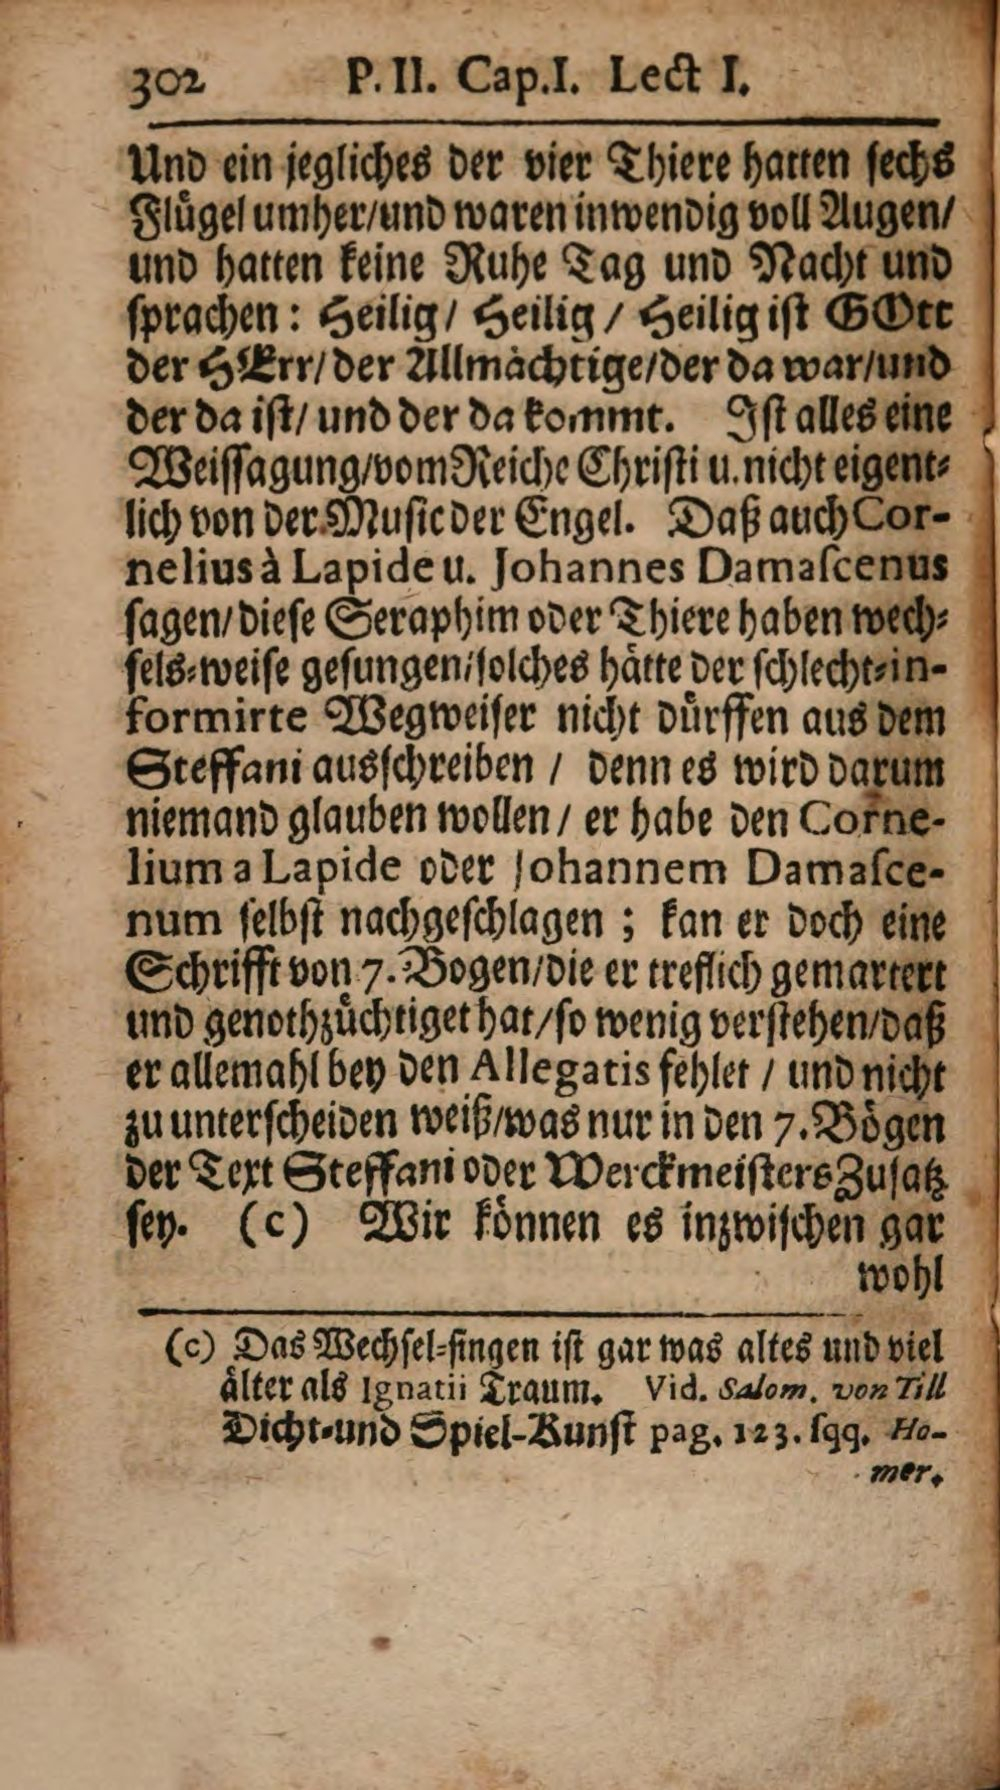 302 P. II. Cap. I. Lect I.
Und ein jegliches der vier Thiere hatten sechs
Flügel umher/und waren inwendig voll Augen/
und hatten keine Ruhe Tag und Nacht und
sprachen: Heilig/ Heilig / Heilig ist GOtt
der HErr/ der Allmächtige/der da war/und
der da ist/ und der da kommt. Ist alles eine
Weissagung/vom Reiche Christi u. nicht eigent-
lich von der Music der Engel. Daß auch Cor-
nelius à Lapide u. Johannes Damascenus
sagen/ diese Seraphim oder Thiere haben wech-
sels-weise gesungen/solches hätte der schlecht-in-
formirte Wegweiser nicht dürffen aus dem
Steffani ausschreiben / denn es wird darum
niemand glauben wollen / er habe den Corne-
lium a Lapide oder Johannem Damasce-
num selbst nachgeschlagen ; kan er doch eine
Schrifft von 7. Bogen/die er treflich gemartert
und genothzüchtiget hat/so wenig verstehen/daß
er allemahl bey den Allegatis fehlet / und nicht
zu unterscheiden weiß/was nur in den 7. Bögen
der Text Steffani oder Werckmeisters Zusatz
sey. (c) Wir können es inzwischen gar
wohl
(c) Das Wechsel-singen ist gar was altes und viel
älter als Ignatii Traum. Vid. Salom. von Till
Dicht-und Spiel-Kunst pag. 123. sqq. Ho-
mer.